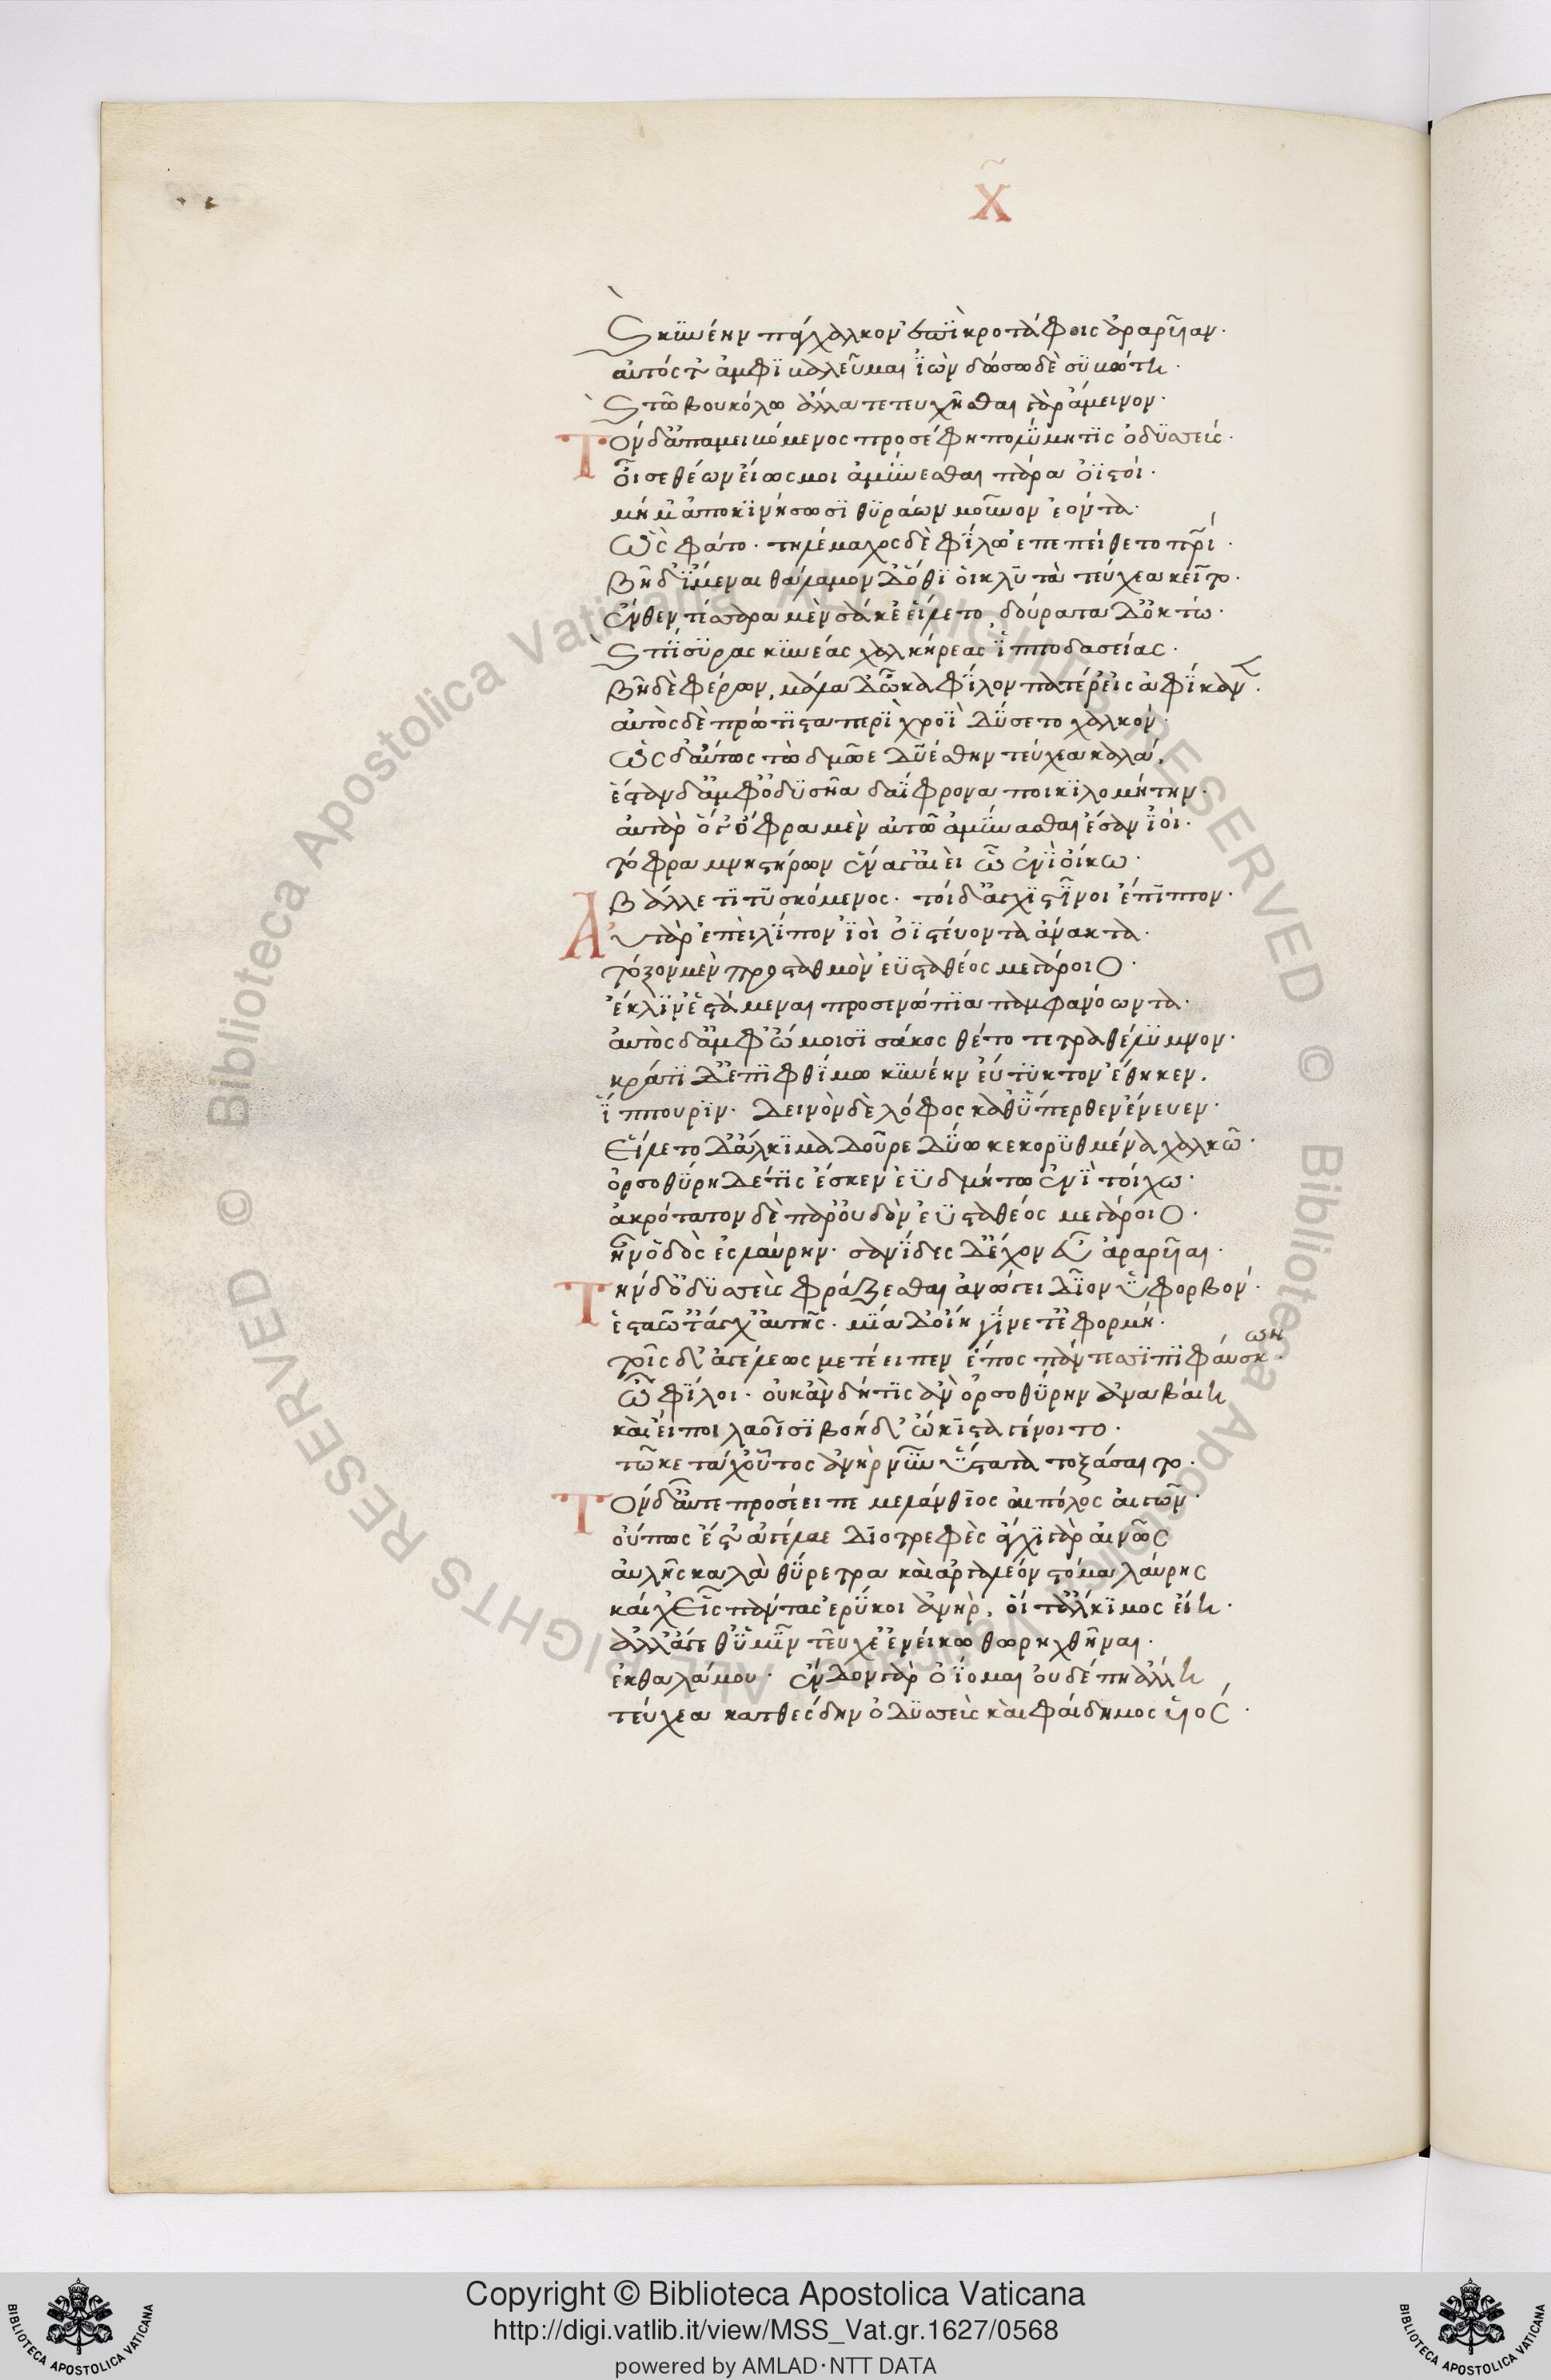 χ̃
Ϛ κϋνέην πάγχαλκον ἐπῒ κροτάφοις ἀραρυῖαν·
αὐτός τ' ἀμφϊβαλεῦμαι ϊὼν δώσω δὲ σϋβώτη·
Ϛ τῶ βουκόλω ἄλλα τετευχῆσθαι γὰρ ἄμεινον·
Τὸν δ' ἀπαμειβόμενος προσέφη πολΰμητϊς ὀδϋσσεύς·
οἶσε θέων εἵως μοι ἀμΰνεσθαι πάρα ὀϊστοί·
μή μ' ἀποκϊνήσωσϊ θϋράων μοῦνον ἐόντα·
Ὣς φάτο· τηλέμαχος δὲ φΐλω ἐπεπείθετο πρί·
βῆ δ' ΐμεναι θάλαμον δ' ὅθϊ οἱ κλϋτὰ τεύχεα κεῖτο·
ἔνθεν τέσσαρα μὲν σάκε' εἵλετο, δούρατα δ' ὀκτώ·
Ϛ πΐσϋρας κϋνέας χαλκήρεας ϊπποδασείας·
βῆ δὲ φέρων, μάλα δ' ὦκα φΐλον πατέρ' εἰσαφΐκανε·
αὐτὸς δὲ πρώτϊστα περῒ χροῒ δΰσετο χαλκόν·
ὣς δ' αὔτως τὼ δμῶε δϋέσθην τεύχεα καλά,
ἕσταν δ' ἀμφ' ὀδϋσῆα δαΐφρονα ποικϊλομήτην·
αὐτὰρ ὅγ' ὄφρα μὲν αὐτῶ ἀμΰνασθαι ἔσαν ϊοί·
τόφρα μνηστήρων ἕνα γ' αἰεὶ ὧ ἐνῒ οἴκω·
βάλλε τϊτϋσκόμενος· τοὶ δ' ἀγχϊστῖνοι ἔπϊπτον·
Αὐτὰρ ἐπεὶ λΐπον ϊοὶ ὀϊστεύοντα ἄνακτα·
τόξον μὲν πρὸς σταθμὸν ἐϋσταθέος μεγάροιο·
ἔκλϊν' ἑστάμεναι προσενώπϊα παμφανόωντα·
αὐτὸς δ' ἀμφ' ὤμοισϊ σάκος θέτο τετραθέλϋμνον·
κρατῒ δ' ἐπ' ϊφθΐμω κϋνέην εὔτϋκτον ἔθηκεν.
ΐππουρϊν· δεινὸν δὲ λόφος καθΰπερθεν ἔνευεν·
εἵλετο δ' ἄλκϊμα δοῦρε δΰω κεκορϋθμένα χαλκῶ·
ὀρσοθΰρη δέ τϊς ἔσκεν ἐϋδμήτω ἐνῒ τοίχω·
ἀκρότατον δὲ παρ' οὐδὸν ἐϋσταθέος μεγάροιο·
ἦν ὁδὸς ἐς λαύρην· σανΐδες δ' ἔχον εὖ ἀραρυῖαι·
Τὴν δ' ὀδϋσσεὺς φράζεσθαι ἀνώγει δῖον ϋφορβόν·
ἑσταῶτ' ἄγχ' αὐτῆς· μΐα δ' οἴη γΐνετ' ἐφορμή·
τοῖς δ' ἀγέλεως μετέειπεν ἔπος πάντεσσϊ πϊφαύσκων·
ὦ φΐλοι· οὐκ ἂν δή τϊς ἀν' ὀρσοθΰρην ἀναβαίη
καὶ εἴποι λαοῖσϊ βοὴ δ' ὤκϊστα γένοιτο·
τῶ κε τάχ' οὗτος ἀνὴρ νῦν ΰστατα τοξάσαιτο·
Τὸν δ' αὖτε προσέειπε μελάνθϊος αἰπόλος αἰγῶν·
οὔπως ἔστ' ἀγέλαε δϊοτρεφὲς ἄγχϊ γὰρ αἰνῶς
αὐλῆς καλὰ θΰρετρα καὶ ἀργαλέον στόμα λαύρης
καί χ' εἷς πάντας ἐρΰκοι ἀνὴρ, ὅς τ' ἄλκϊμος εἴη·
ἀλλ' ἄγεθ' ϋμῖν τεύχε' ἐνείκω θωρηχθῆναι·
ἐκ θαλάμου· ἔνδον γὰρ ὀΐομαι οὐδέ πη ἄλλη
τεύχεα κατθέσθην ὀδϋσσεὺς καὶ φαίδημος υἱός·
Copyright © Biblioteca Apostolica Vaticana
http://digi.vatlib.it/view/MSS_Vat.gr.1627/0568
powered by AMLAD·NTT DATA